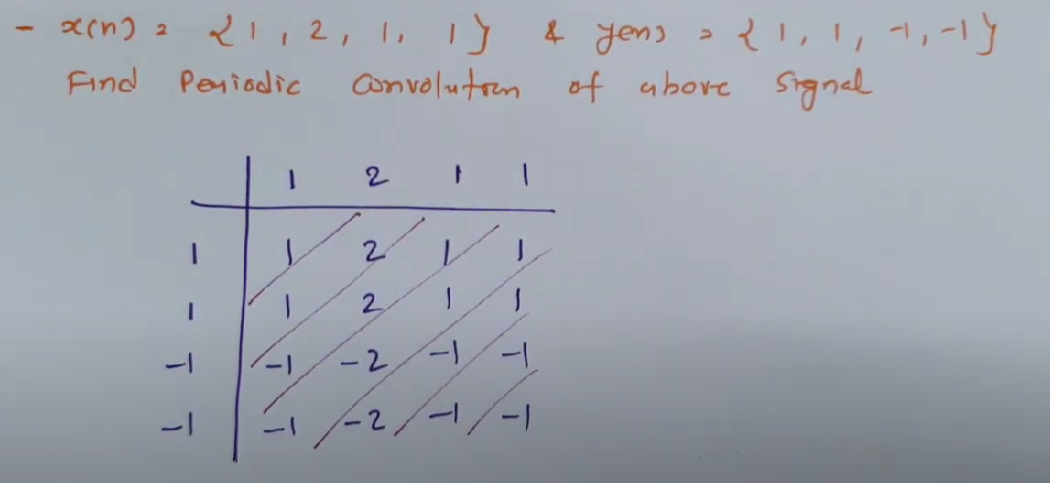 - x(n) = {1, 2, 1, 1} & y(n) = {1, 1, -1, -1}
Find Periodic Convolution of above Signal
1 2 1 1
1 1 2 1 1
1 1 2 1 1
-1 -1 -2 -1 -1
-1 -1 -2 -1 -1